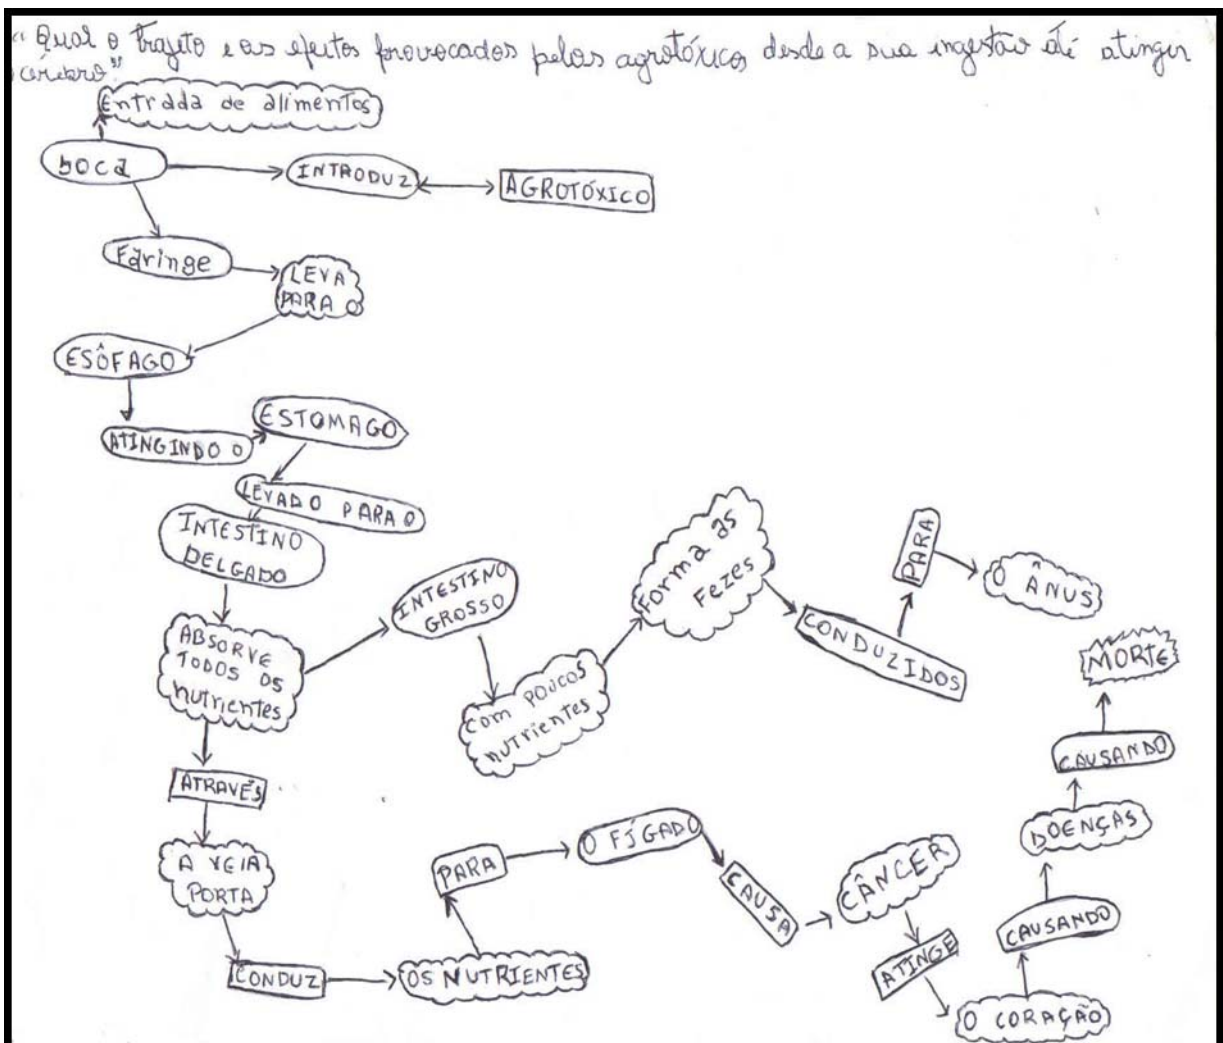 "Qual o trajeto e os efeitos provocados pelos agrotóxicos desde a sua ingestão até atingir
cérebro"
Entrada de alimentos
boca
INTRODUZ
AGROTÓXICO
Faringe
LEVA
PARA O
ESÔFAGO
ATINGINDO O
ESTOMAGO
LEVADO PARA O
INTESTINO
DELGADO
ABSORVE
TODOS OS
nutrientes
INTESTINO
GROSSO
com poucos
nutrientes
Forma as
Fezes
CONDUZIDOS
PARA
O ÂNUS
ATRAVÉS
A VEIA
PORTA
CONDUZ
OS NUTRIENTES
PARA
O FÍGADO
CAUSA
CÂNCER
ATINGE
O CORAÇÃO
CAUSANDO
DOENÇAS
CAUSANDO
MORTE